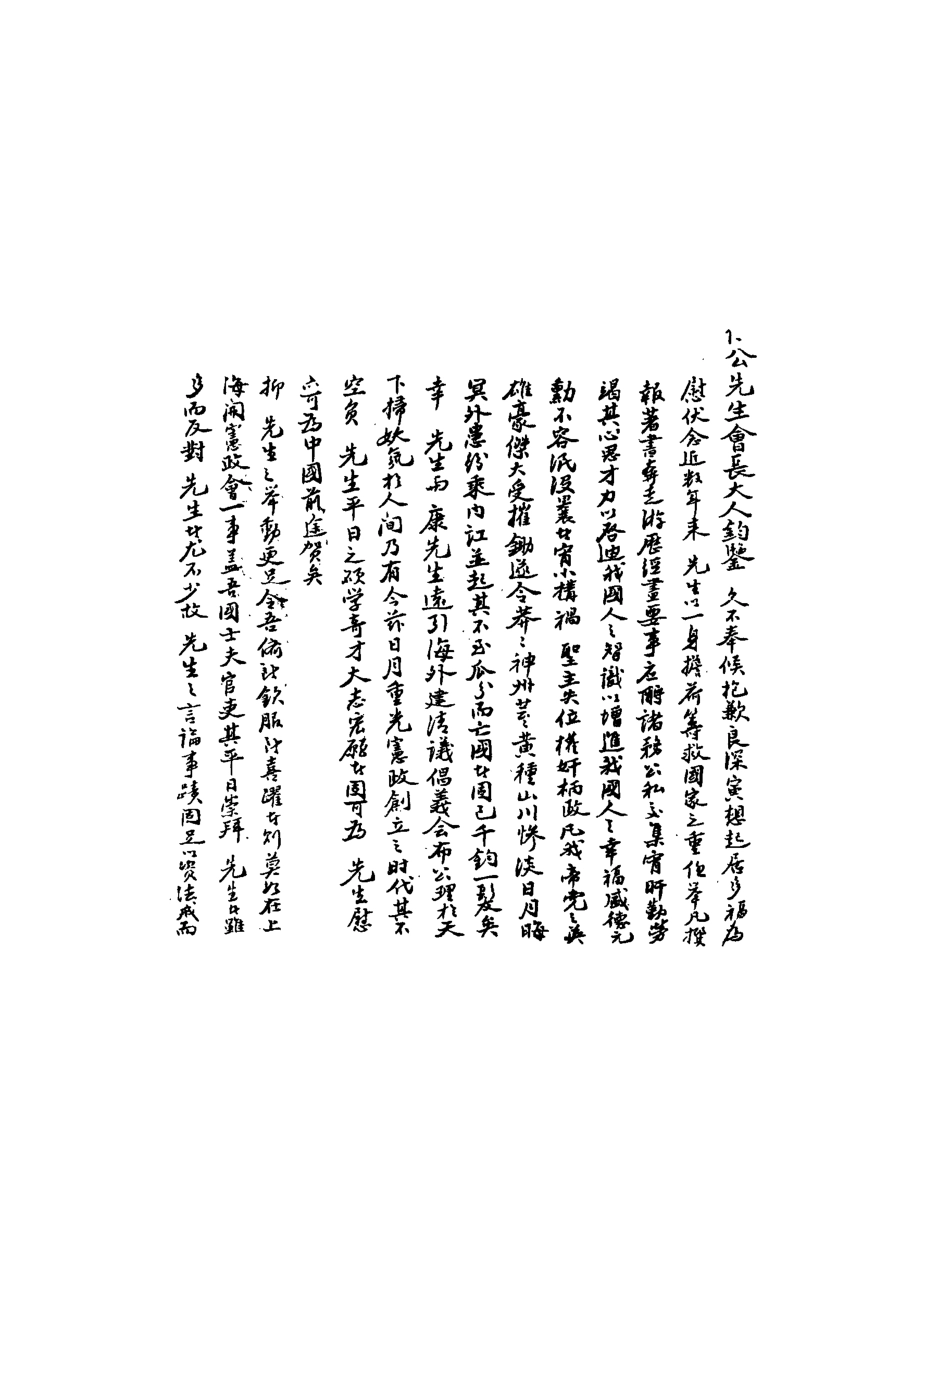 公先生會長大人鈞鑒 久不奉候抱歉良深寅想起居多福為
慰伏念近数年来 先生以一身擔荷籌救國家之重任举凡撰
報著書奔走游歷經畫要事应酧諸務公私交集宵旰勤勞
竭其心思才力以啓迪我國人之智識以增進我國人之幸福盛德元
勳不容泯沒曩者宵小構禍 聖主失位權奸柄政凡我帝党之英
雄豪傑大受摧鋤遂令莽〻神州芸〻黄種山川慘淡日月晦
冥外患紛乘内訌並起其不至瓜分而亡國者固已千鈞一髮矣
幸 先生而 康先生遠引海外建清議倡義会布公理於天
下掃妖氛於人间乃有今茲日月重光憲政創立之时代其不
空负 先生平日之硕学奇才大志宏願者固可為 先生慰
亦可為中國前途賀矣
抑 先生之举動更足令吾儕既欽服既喜躍者则莫如在上
海開憲政會一事盖吾國士夫官吏其平日崇拜 先生者雖
多而反對 先生者尤不少故 先生之言論事蹟固足以資法戒而